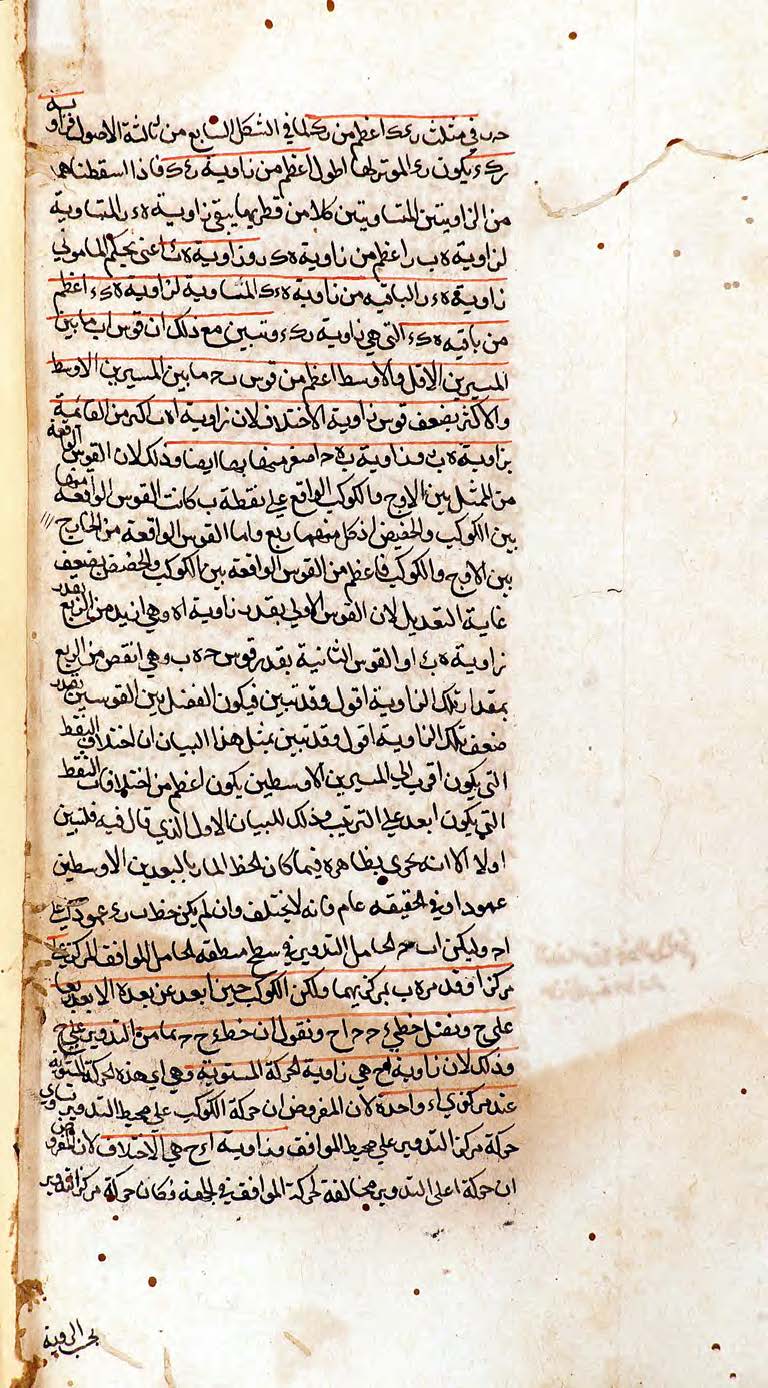 حـ ر في مثلث ر ء ك اعظم من ر ك لما في الشكل السابع من ثالثة الاصول فزاوية
ر ك ء يكون ر ء الموتر لها اطول اعظم من زاوية ر ء ك فاذا اسقطناهما
من الزاويتين المتساويتين كلا من قطريهما يبقى زاوية ه ء ر المساوية
لزاوية ه ب ر اعظم من زاوية ه ك ر وزاوية اعني بحكم الماموني
زاوية ه ء ر الباقيه من زاوية ه ء ك المساوية لزاوية ه ك ء اعظم
من باقيه ه ك ء التي هي زاوية ر ك ء وتبين مع ذلك ان قوس ا ب ما بين
المسيرين الاقل والاوسط اعظم من قوس ب حـ ما بين المسيرين الاوسط
والاكثر بضعف قوس زاوية الاختلاف لان زاوية ا ه ب اكبر من القائمة
بزاوية ه ب ء وزاوية ب ه حـ اصغر منها بها ايضا وذلك لان القوس الواقعة
من الممثل بين الاوج والكوكب الواقع على نقطة ب كانت القوس الواقعة منها
بين الكوكب والحضيض اذ كل منهما ربع واما القوس الواقعة من الخارج
بين الاوج والكوكب فاعظم من القوس الواقعة بين الكوكب والحضيض بضعف
غاية التعديل لان القوس الاولى بقدر زاوية ا ه وهي ازيد من الربع بقدر
زاوية ه ب ء او القوس الثانية بقدر قوس حـ ه ب وهي انقص من الربع
بمقدار تلك الزاوية اقول وقد تبين فيكون الفضل بين القوسين بقدر
ضعف تلك الزاوية اقول وقد تبين بمثل هذا البيان ان اختلاف النقط
التي يكون اقرب الى المسيرين الاوسطين يكون اعظم من اختلافات النقط
التي يكون ابعد على الترتيب وذلك للبيان الاول الذي قال فيه فلنبين
اولا الا انه بظاهره فيما كان الخط المار بالبعدين الاوسطين
عمودا وفي الحقيقه عام فانه لا يختلف وان لم يكن خط ب ر ء عمودا على
ا حـ وليكن ا ب حـ الحامل التدوير في سطح منطقة الحامل الموافق المركز على
مركز ا وقد مر ه ب بمركزيهما وليكن الكوكب حين ابعد عن بعده الابعد
على ح ونصل خطي ء حـ ا ح ونقول ان خط ء ح حـ مماس التدوير على ح
وذلك لان زاوية هي زاوية الحركة المستوية وهي اي هذه الحركة المستوية
عند مركزي ا ء واحدة لان المفروض ان حركة الكوكب على محيط التدوير تساوي
حركة مركز التدوير على محيط الموافق وزاوية ا ء ح هي الاختلاف لان المفروض
ان حركة اعلى التدوير مخالفة لحركة الموافق في الجهة وكان حركة مركز التدوير
بحسب الروية